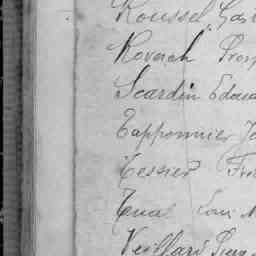 Roussel Gas
Roverch Prosp
Scardin Edoua
Tapponnier Jo
Tessier Fr
Tual Loui M
Veillard Eug